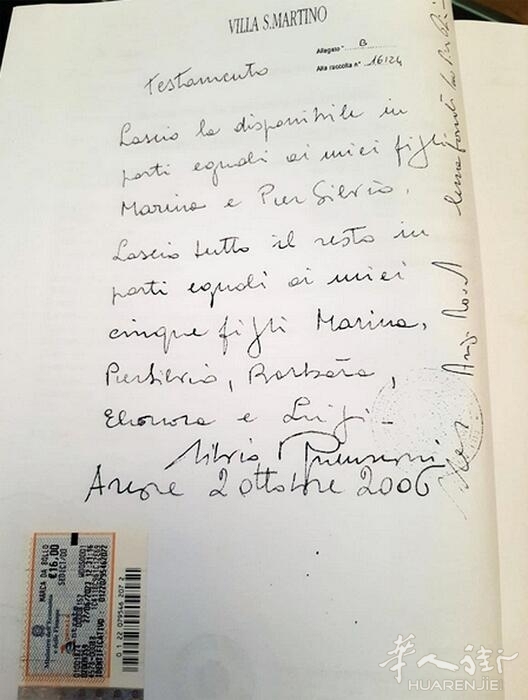 VILLA S.MARTINO
Allegato " B
Alla raccolta n° 16124
Testamento
Lascio la disponibile in
parti eguali ai miei figli
Marina e Pier Silvio.
Lascio tutto il resto in
parti eguali ai miei
cinque figli Marina,
PierSilvio, Barbara,
Eleonora e Luigi –
Silvio Berlusconi
Arcore 2 ottobre 2006
MARCA DA BOLLO
€16,00
SEDICI/00
Ministero dell'Economia
e delle Finanze
27/06/2023
IDENTIFICATIVO
0 1 22 079546 207 2
华人街
HUARENJIE.